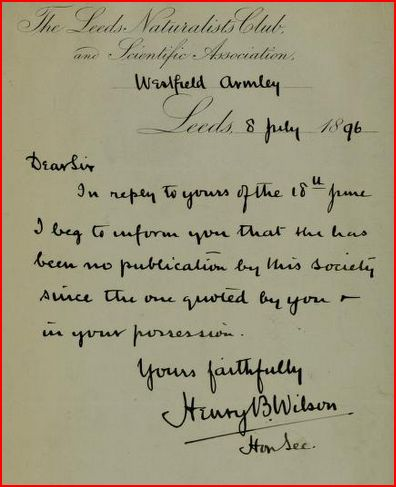 The Leeds Naturalists Club,
and Scientific Association,
Westfield Armley
Leeds, 8 July 1896
Dear Sir
In repey to yours of the 18th June
I beg to inform you that the has
been no publication by this society
since the one quoted by you &
in your possession.
Yours faithfully
Henry B. Wilson.
Hon Sec.